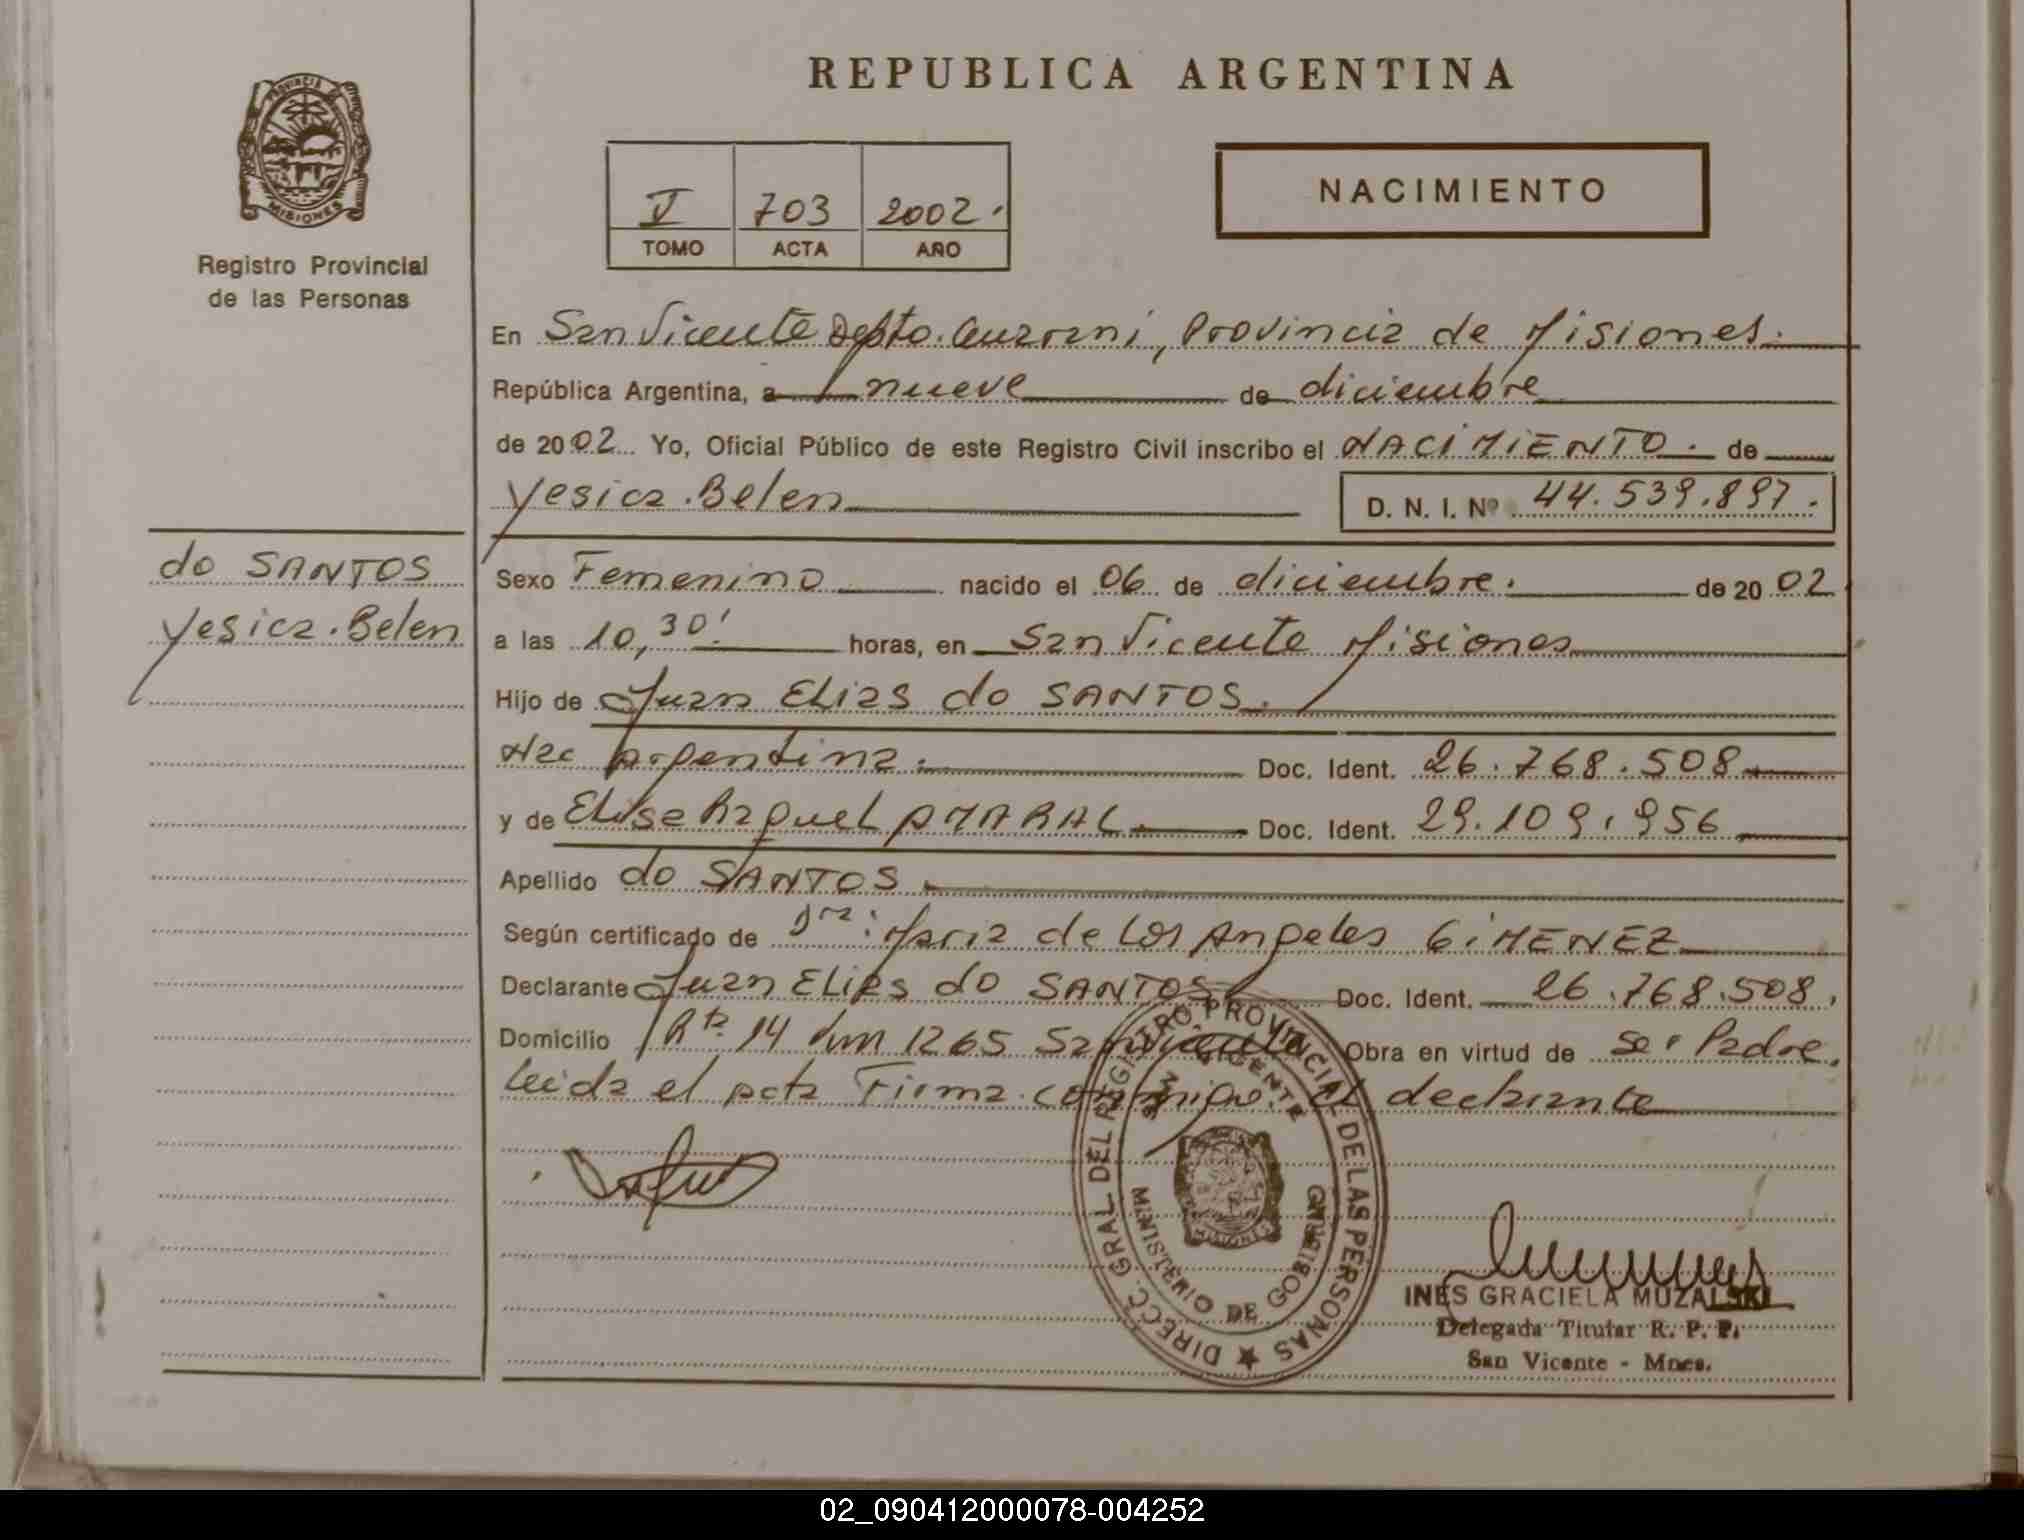 REPUBLICA ARGENTINA
PROVINCIA DE
MISIONES
Registro Provincial
de las Personas
V 703 2002.
TOMO ACTA AÑO
NACIMIENTO
En San Vicente Depto. Guarani, Provincia de Misiones.
República Argentina, a nueve de diciembre
de 2002 Yo, Oficial Público de este Registro Civil inscribo el NACIMIENTO. de
Yesica. Belen D. N. I. Nº 44.539.897.
do SANTOS
Yesica. Belen
Sexo Femenino nacido el 06 de diciembre. de 2002
a las 10,30'. horas, en San Vicente Misiones
Hijo de Juan Elias do SANTOS.
Nac Argentina. Doc. Ident. 26.768.508
y de Elisa Raquel AMARAL Doc. Ident. 29.109.956
Apellido do SANTOS
Según certificado de Dra: Maria de Los Angeles GIMENEZ
Declarante Juan Elias do SANTOS Doc. Ident. 26.768.508.
Domicilio Rta. 14 km 1265 San Vicente Obra en virtud de ser Padre.
leida el acta Firma conmigo. el declarante
DIRECC. GRAL. DEL REGISTRO PROVINCIAL DE LAS PERSONAS
SAN VICENTE
MINISTERIO DE GOBIERNO
MISIONES
INES GRACIELA MUZALSKI
Delegada Titular R. P. P.
San Vicente - Mnes.
02_090412000078-004252